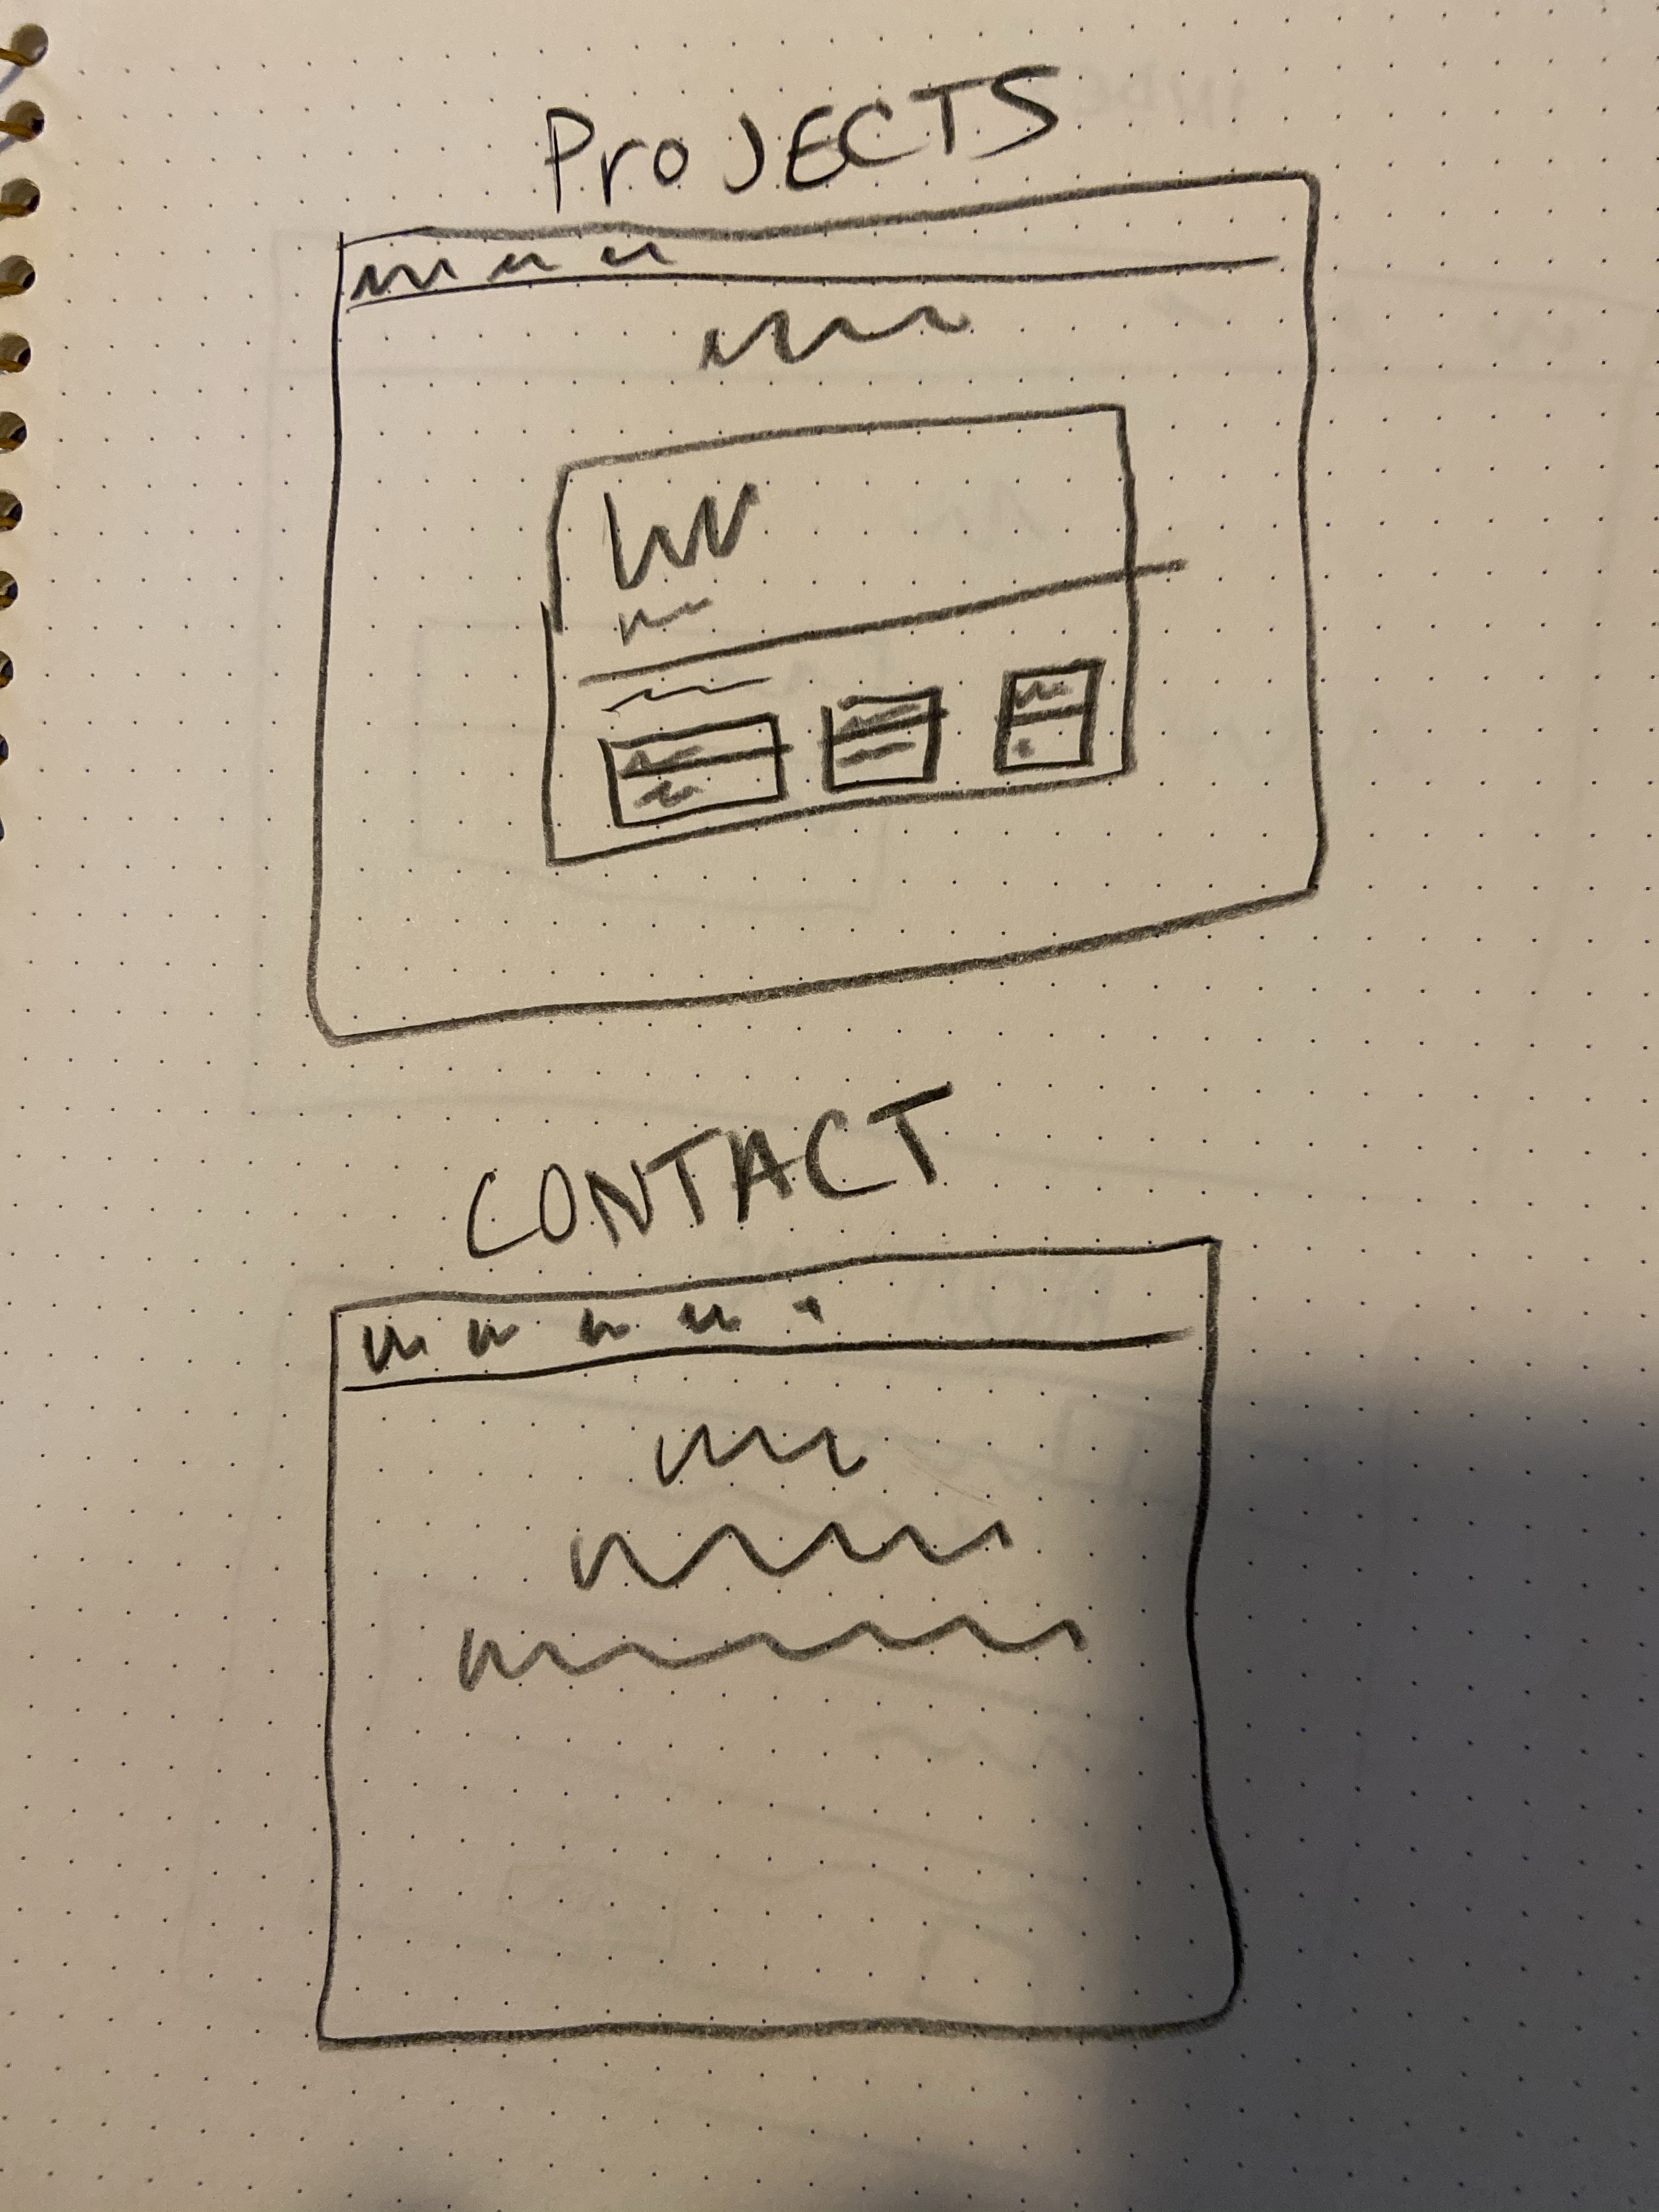 ProJECTS
CONTACT